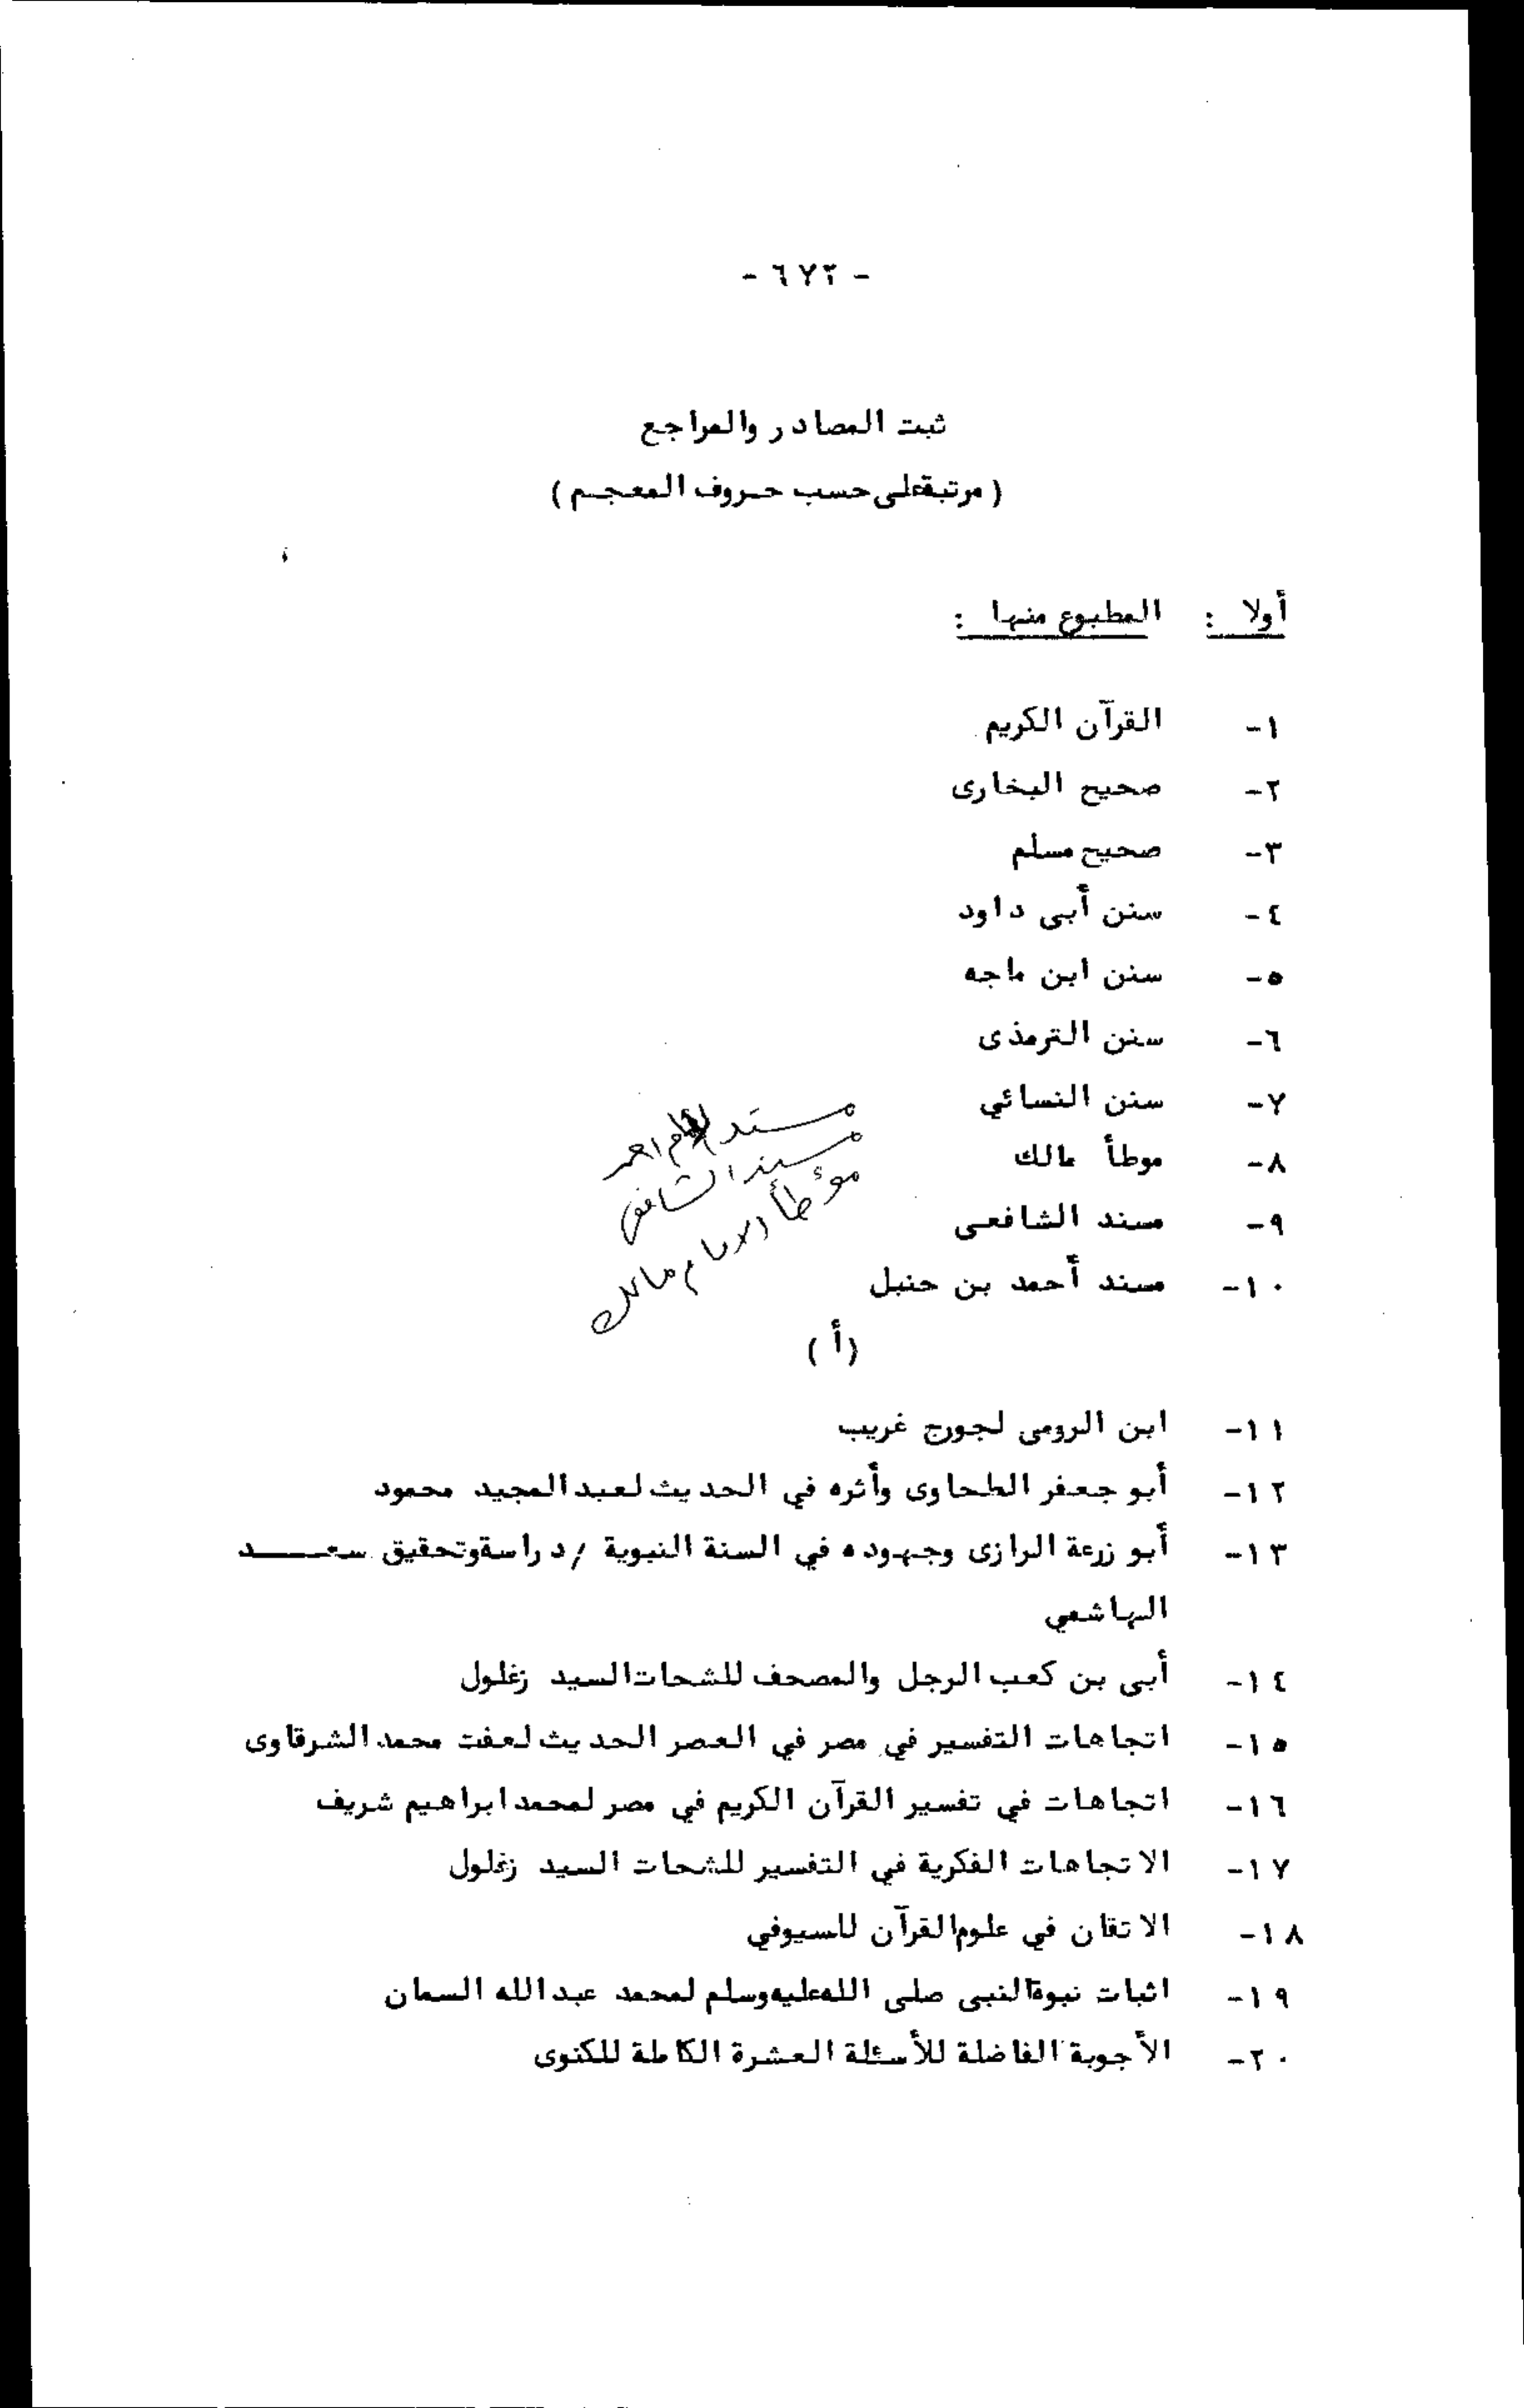 - ٦٧٢ -
ثبت المصادر والمراجع
( مرتبة على حسب حـروف المعجـم )
أولا : المطبوع منها :
١- القرآن الكريم
٢- صحيح البخارى
٣- صحيح مسلم
٤- سنن أبى داود
٥- سنن ابن ماجه
٦- سنن الترمذى
٧- سنن النسائي
٨- موطأ مالك
٩- مسند الشافعى
١٠- مسند أحمد بن حنبل
مسند الإمام احمد
مسند الشافعي
مؤطأ الامام مالك
(أ)
١١- ابن الرومى لجورج غريب
١٢- أبو جعفر الطحاوى وأثره في الحديث لعبد المجيد محمود
١٣- أبو زرعة الرازى وجهوده في السنة النبوية / دراسة وتحقيق سعـــد
الهاشمي
١٤- أبى بن كعب الرجل والمصحف للشحات السيد زغلول
١٥- اتجاهات التفسير في مصر في العصر الحديث لعفت محمد الشرقاوى
١٦- اتجاهات في تفسير القرآن الكريم في مصر لمحمد ابراهيم شريف
١٧- الاتجاهات الفكرية في التفسير للشحات السيد زغلول
١٨- الاتقان في علوم القرآن للسيوفي
١٩- اثبات نبوة النبى صلى الله عليه وسلم لمحمد عبد الله السمان
٢٠- الأجوبة الفاضلة للأسئلة العشرة الكاملة للكنوى